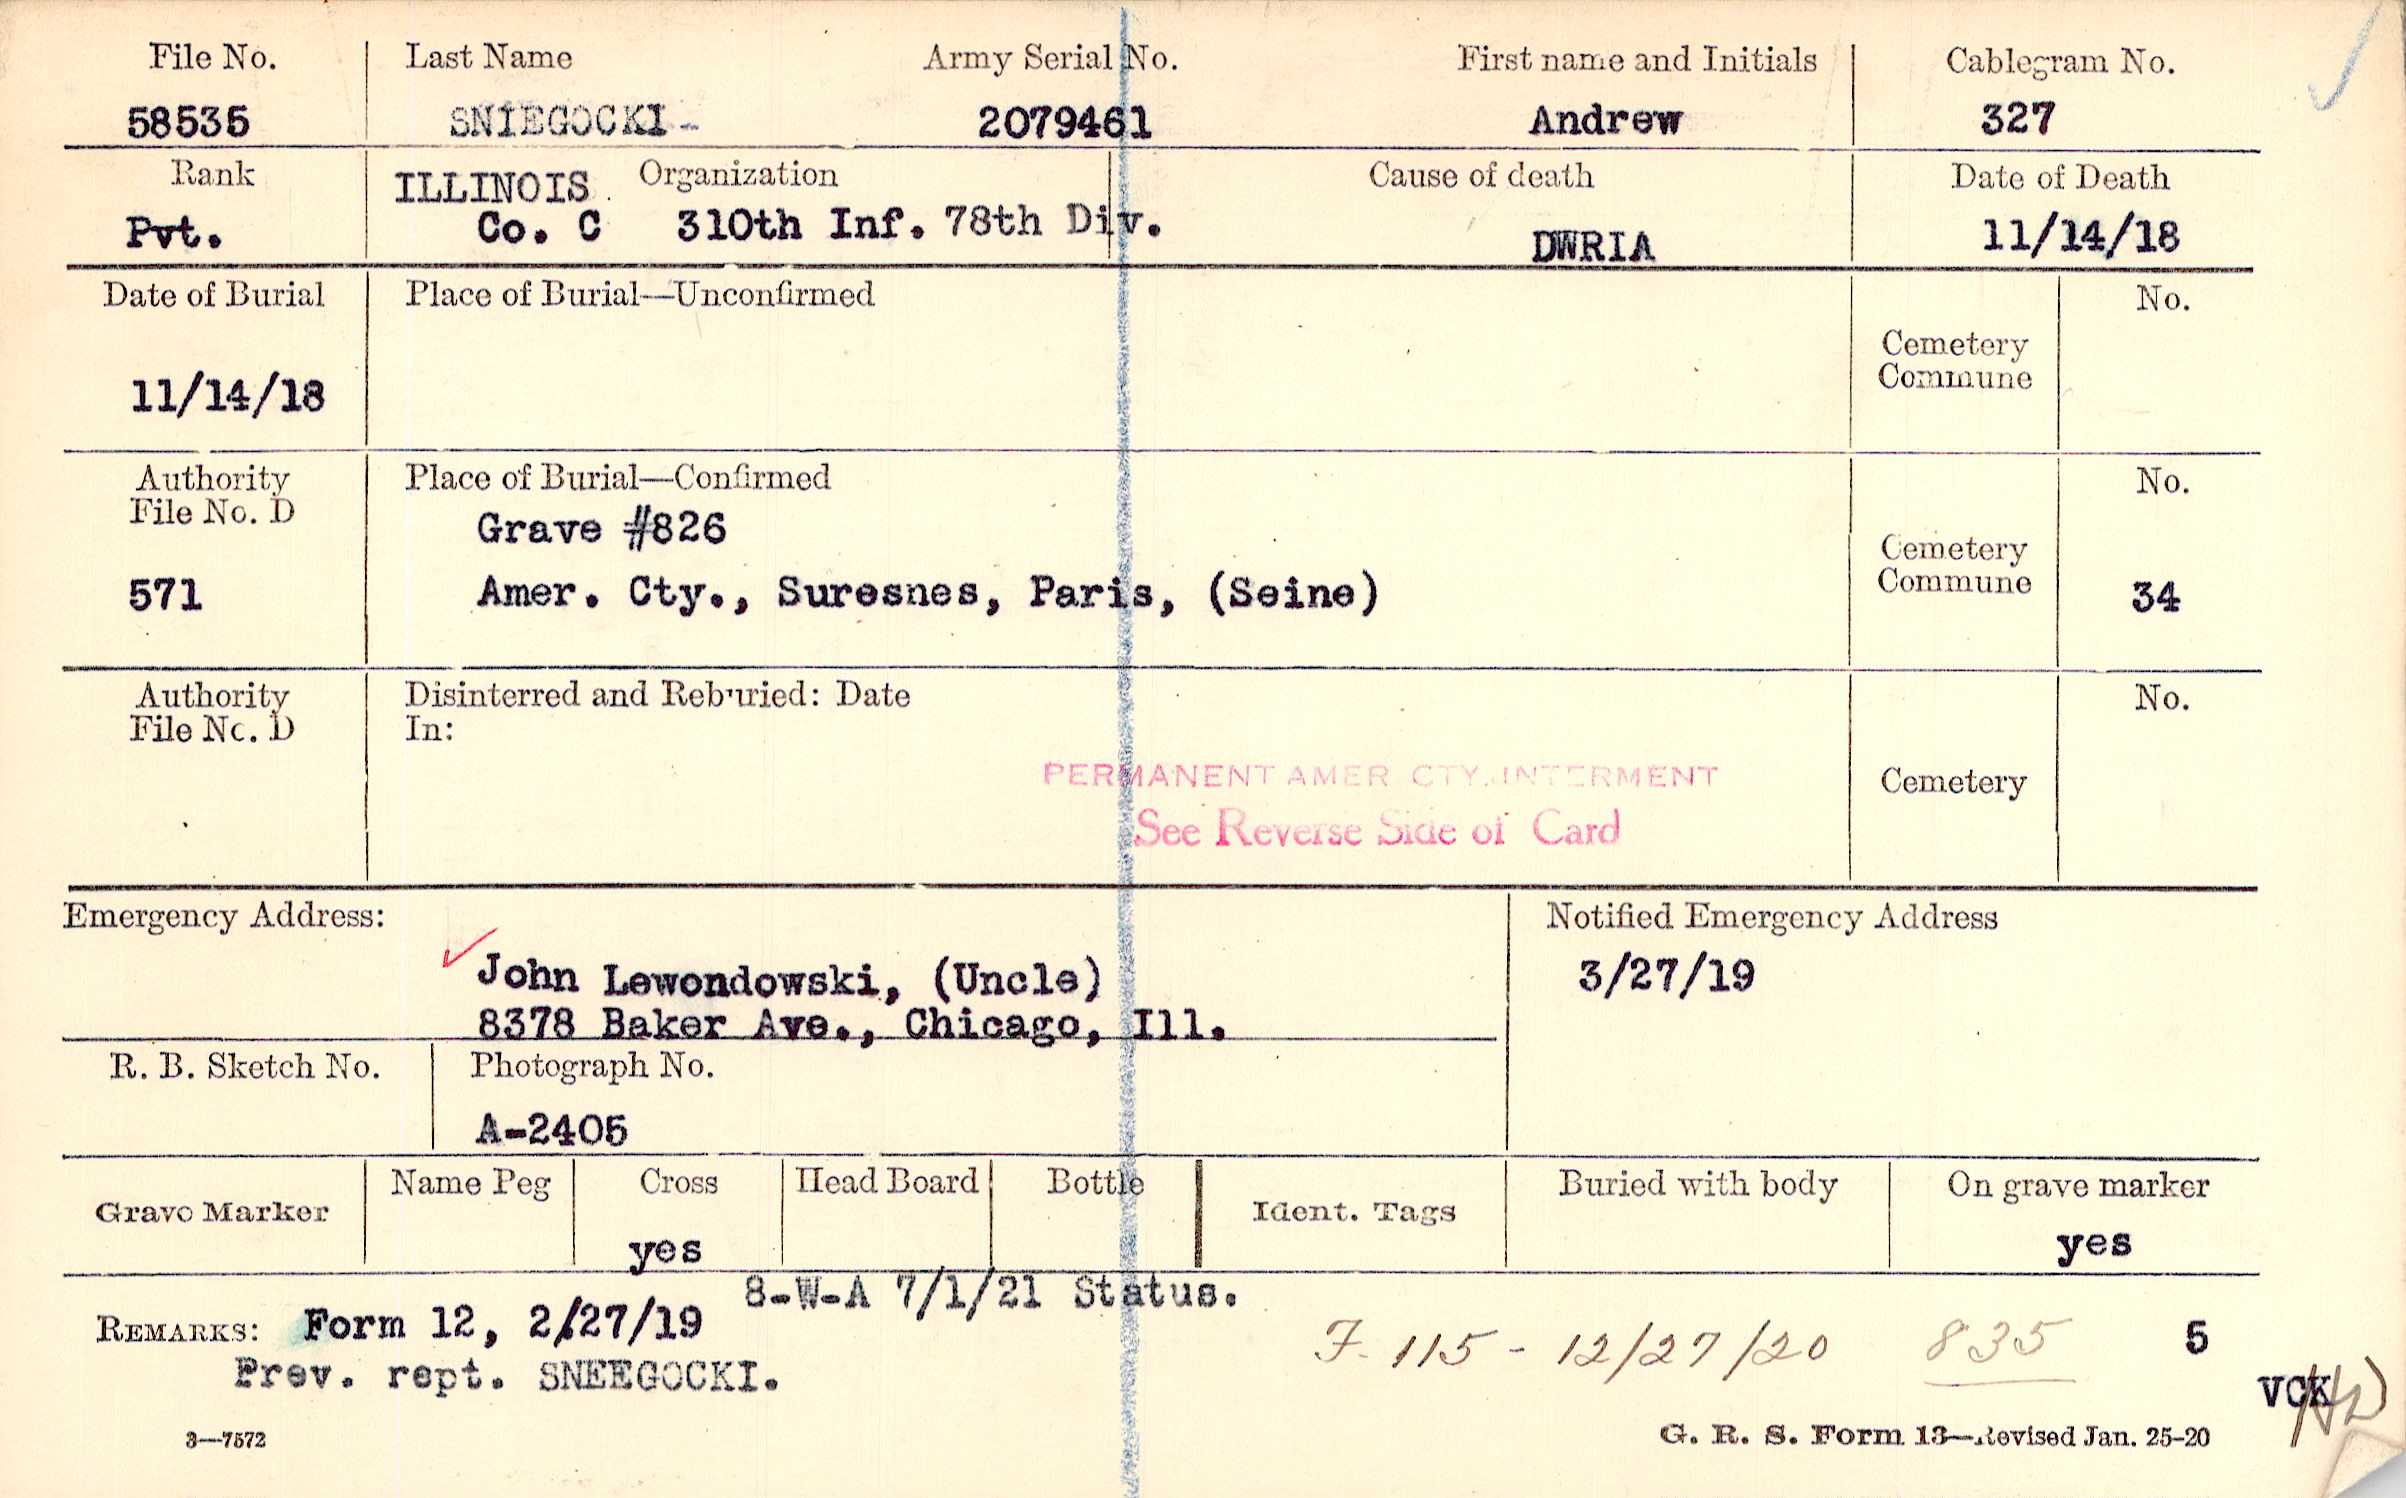 File No. Last Name Army Serial No. First name and Initials Cablegram No.
58535 SNIEGOCKI 2079461 Andrew 327
Rank ILLINOIS Organization Cause of death Date of Death
Pvt. Co. C 310th Inf. 78th Div. DWRIA 11/14/18
Date of Burial Place of Burial—Unconfirmed No.
Cemetery
Commune
11/14/18
Authority Place of Burial—Confirmed No.
File No. D
Grave #826
Cemetery
Commune
571 Amer. Cty., Suresnes, Paris, (Seine) 34
Authority Disinterred and Reburied: Date No.
File No. D In:
PERMANENT AMER CTY. INTERMENT
Cemetery
See Reverse Side of Card
Emergency Address: Notified Emergency Address
John Lewondowski, (Uncle) 3/27/19
8378 Baker Ave., Chicago, Ill.
R. B. Sketch No. Photograph No.
A-2405
Grave Marker Name Peg Cross Head Board Bottle Ident. Tags Buried with body On grave marker
yes yes
8-W-A 7/1/21 Status.
REMARKS: Form 12, 2/27/19
F. 115 - 12/27/20 835 5
Prev. rept. SNEEGOCKI.
VCK
3—7572 G. R. S. Form 13—Revised Jan. 25-20